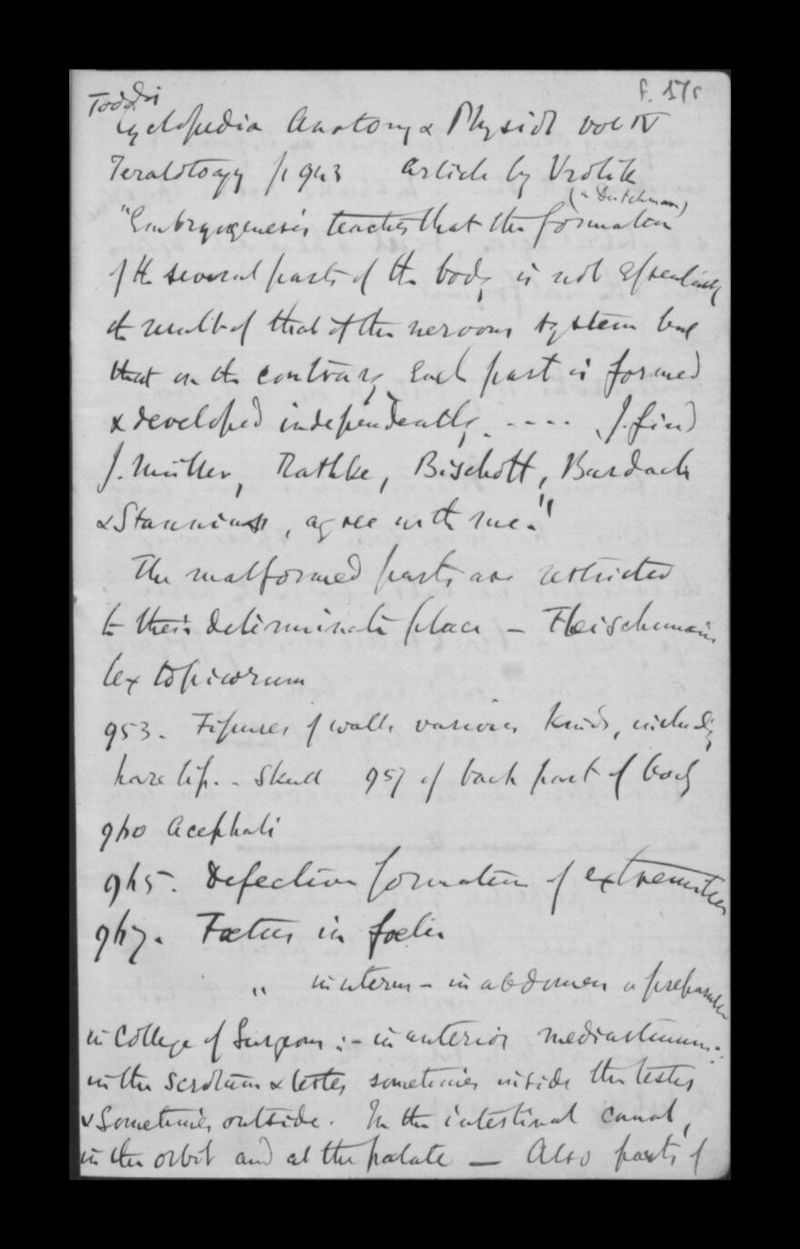 f. 57r
Todd's
Cyclopedia Anatomy & Physiol vol IV
Teratology p 943 article by Vrolik
(a Dutchman)
"Embryogenesis teaches that the formation
of the several parts of the body is not essentially
the result of that of the nervous system but
that on the contrary each part is formed
& developed independently. ---- I find
J. Müller, Rathke, Bischoff, Burdach
& Stannius, agree with me."
The malformed parts are restricted
to their determinate place – Fleischmann's
lex topicorum
953. Fissures of walls various kinds, including
hare lip. - Skull 957 of back part of body
960 Acephali
965. Defective formation of extremities
967. Foetus in foetu
" in uterus – in abdomen a preparation
in College of Surgeons :- in anterior mediastinum :
in the scrotum & testes sometimes inside the testes
& sometimes outside. In the intestinal canal,
in the orbit and at the palate — Also parts of